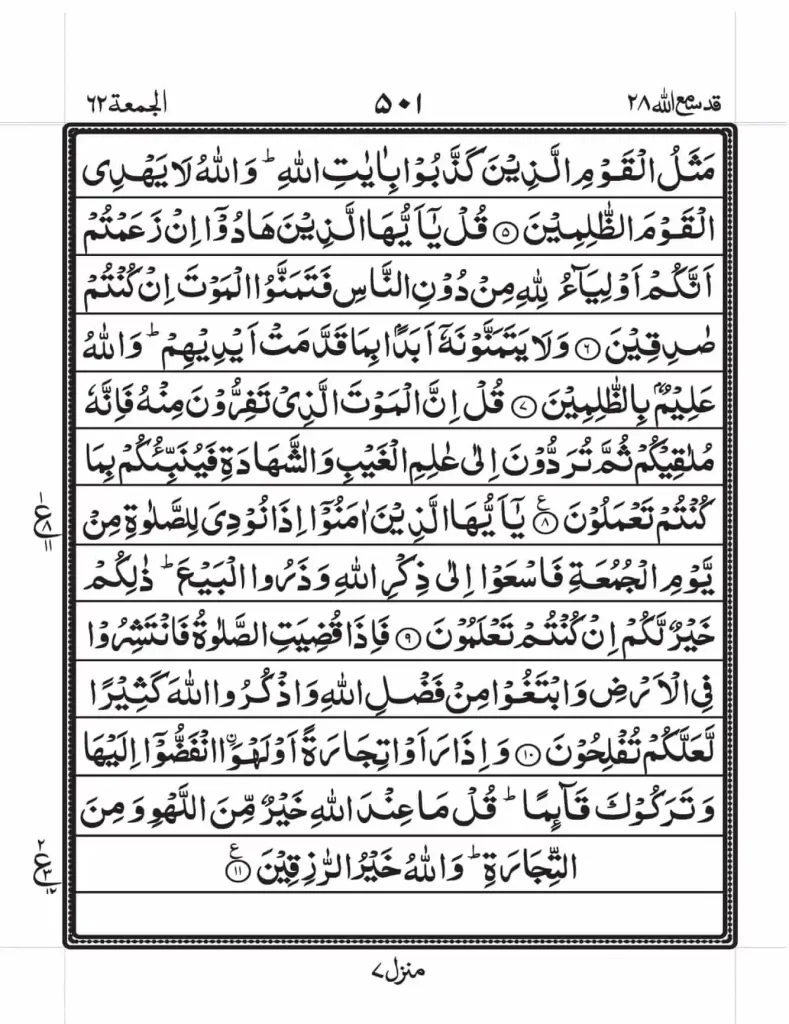 قد سمع الله ٢٨
٥٠١
الجمعة ٦٢
مَثَلُ الْقَوْمِ الَّذِيْنَ كَذَّبُوْا بِاٰيٰتِ اللهِ ؕ وَاللهُ لَا يَهْدِى
الْقَوْمَ الظّٰلِمِيْنَ ۝٥ قُلْ يٰۤاَيُّهَا الَّذِيْنَ هَادُوْۤا اِنْ زَعَمْتُمْ
اَنَّكُمْ اَوْلِيَآءُ لِلّٰهِ مِنْ دُوْنِ النَّاسِ فَتَمَنَّوُا الْمَوْتَ اِنْ كُنْتُمْ
صٰدِقِيْنَ ۝٦ وَلَا يَتَمَنَّوْنَهٗۤ اَبَدًۢا بِمَا قَدَّمَتْ اَيْدِيْهِمْ ؕ وَاللهُ
عَلِيْمٌۢ بِالظّٰلِمِيْنَ ۝٧ قُلْ اِنَّ الْمَوْتَ الَّذِىْ تَفِرُّوْنَ مِنْهُ فَاِنَّهٗ
مُلٰقِيْكُمْ ثُمَّ تُرَدُّوْنَ اِلٰى عٰلِمِ الْغَيْبِ وَالشَّهَادَةِ فَيُنَبِّئُكُمْ بِمَا
كُنْتُمْ تَعْمَلُوْنَ ۝٨ ع يٰۤاَيُّهَا الَّذِيْنَ اٰمَنُوْۤا اِذَا نُوْدِىَ لِلصَّلٰوةِ مِنْ
١ ع ٨ ١١
يَّوْمِ الْجُمُعَةِ فَاسْعَوْا اِلٰى ذِكْرِ اللهِ وَذَرُوا الْبَيْعَ ؕ ذٰلِكُمْ
خَيْرٌ لَّكُمْ اِنْ كُنْتُمْ تَعْلَمُوْنَ ۝٩ فَاِذَا قُضِيَتِ الصَّلٰوةُ فَانْتَشِرُوْا
فِى الْاَرْضِ وَابْتَغُوْا مِنْ فَضْلِ اللهِ وَاذْكُرُوا اللهَ كَثِيْرًا
لَّعَلَّكُمْ تُفْلِحُوْنَ ۝١٠ وَاِذَا رَاَوْا تِجَارَةً اَوْ لَهْوَا۟ اِۨنْفَضُّوْۤا اِلَيْهَا
وَتَرَكُوْكَ قَآئِمًا ؕ قُلْ مَا عِنْدَ اللهِ خَيْرٌ مِّنَ اللَّهْوِ وَمِنَ
التِّجَارَةِ ؕ وَاللهُ خَيْرُ الرّٰزِقِيْنَ ۝١١ ع
٢ ع ٣ ١٢
منزل ٧